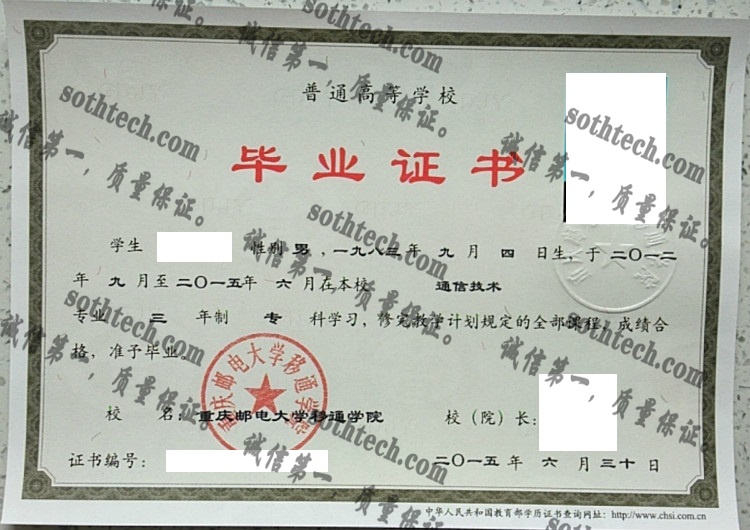 sothtech.com
诚信第一，质量保证。
普通高等学校
sothtech.com
诚信第一，质量保证。
sothtech.com
诚信第一，质量保证。
毕业证书
sothtech.com
诚信第一，质量保证。
学生 性别 男，一九八三年 九 月 四 日生，于 二〇一二
年 九 月至二〇一五年 六 月在本校 通信技术
专业 三 年制 专 科学习，修完教学计划规定的全部课程，成绩合
格，准予毕业。
sothtech.com
诚信第一，质量保证。
sothtech.com
诚信第一，质量保证。
重庆邮电大学移通学院
校 名：重庆邮电大学移通学院 校（院）长：
sothtech.com
诚信第一，质量保证。
证书编号： 二〇一五 年 六 月 三十 日
中华人民共和国教育部学历证书查询网址：http://www.chsi.com.cn